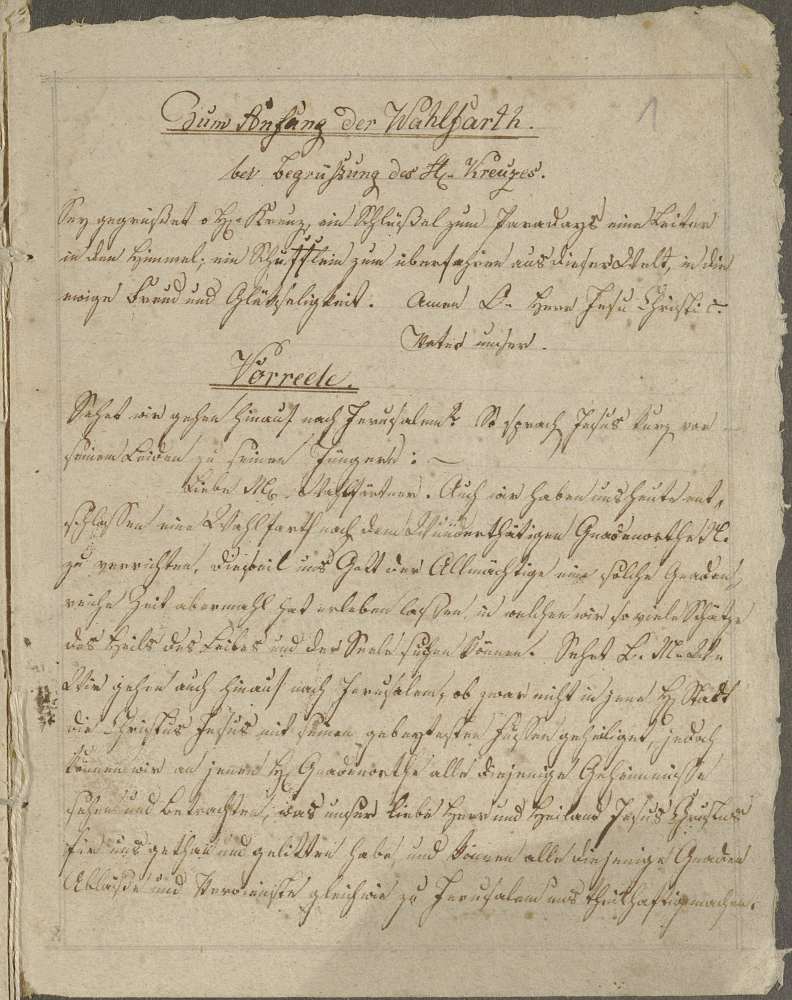 1
Zum Anfang der Wahlfarth.
bei Begrüßung des H. Kreuzes.
Sey gegrüßet o Hl. Kreuz, ein Schlüßel zum Paradays eine Leiter
in den Himmel; ein Schifflein zum überfahren aus dieser Welt, in die
ewige Freud und Glükseligkeit. Amen O. Herr Jesu Christi c.
Vater unser.
Vorrede.
Sehet wir gehen hinauf nach Jerusalem. So sprach Jesus kurz vor
seinem Leiden zu seinen Jüngern: —
Liebe M. Wahlfärtner. Auch wir haben uns heute ent,
schlossen eine Wahlfarth nach dem Wunderthätigen Gnadenorthe N.
zu verrichten, dieweil uns Gott der Allmächtige eine solche Gnaden,
reiche Zeit abermahl hat erleben lassen, in welchen wir so viele Schätze
des Heils des Leibes und der Seele suchen können. Sehet L. M.
Wir gehen auch hinauf nach Jerusalem, ob zwar nicht in jene H. Stadt
die Christus Jesus mit seinen Füssen geheiliget, jedoch
können wir an jenen H. Gnadenorthe alle diejenige Geheimnüsse
sehen und betrachten, was unser liebe Herr und Heiland Jesus Christus
für uns gethan und gelitten habe, und können alle diejenige Gnaden
Abläße und Verdienste gleichwie zu Jerusalem uns theilhaftig machen.